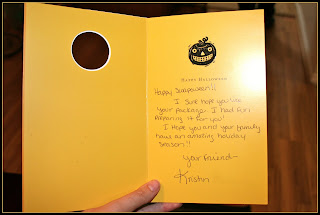 Happy Halloween
Happy Swapoween!!
I sure hope you like
your package. I had fun
preparing it for you!
I hope you and your family
have an amazing holiday
season!!
Your friend-
Kristin